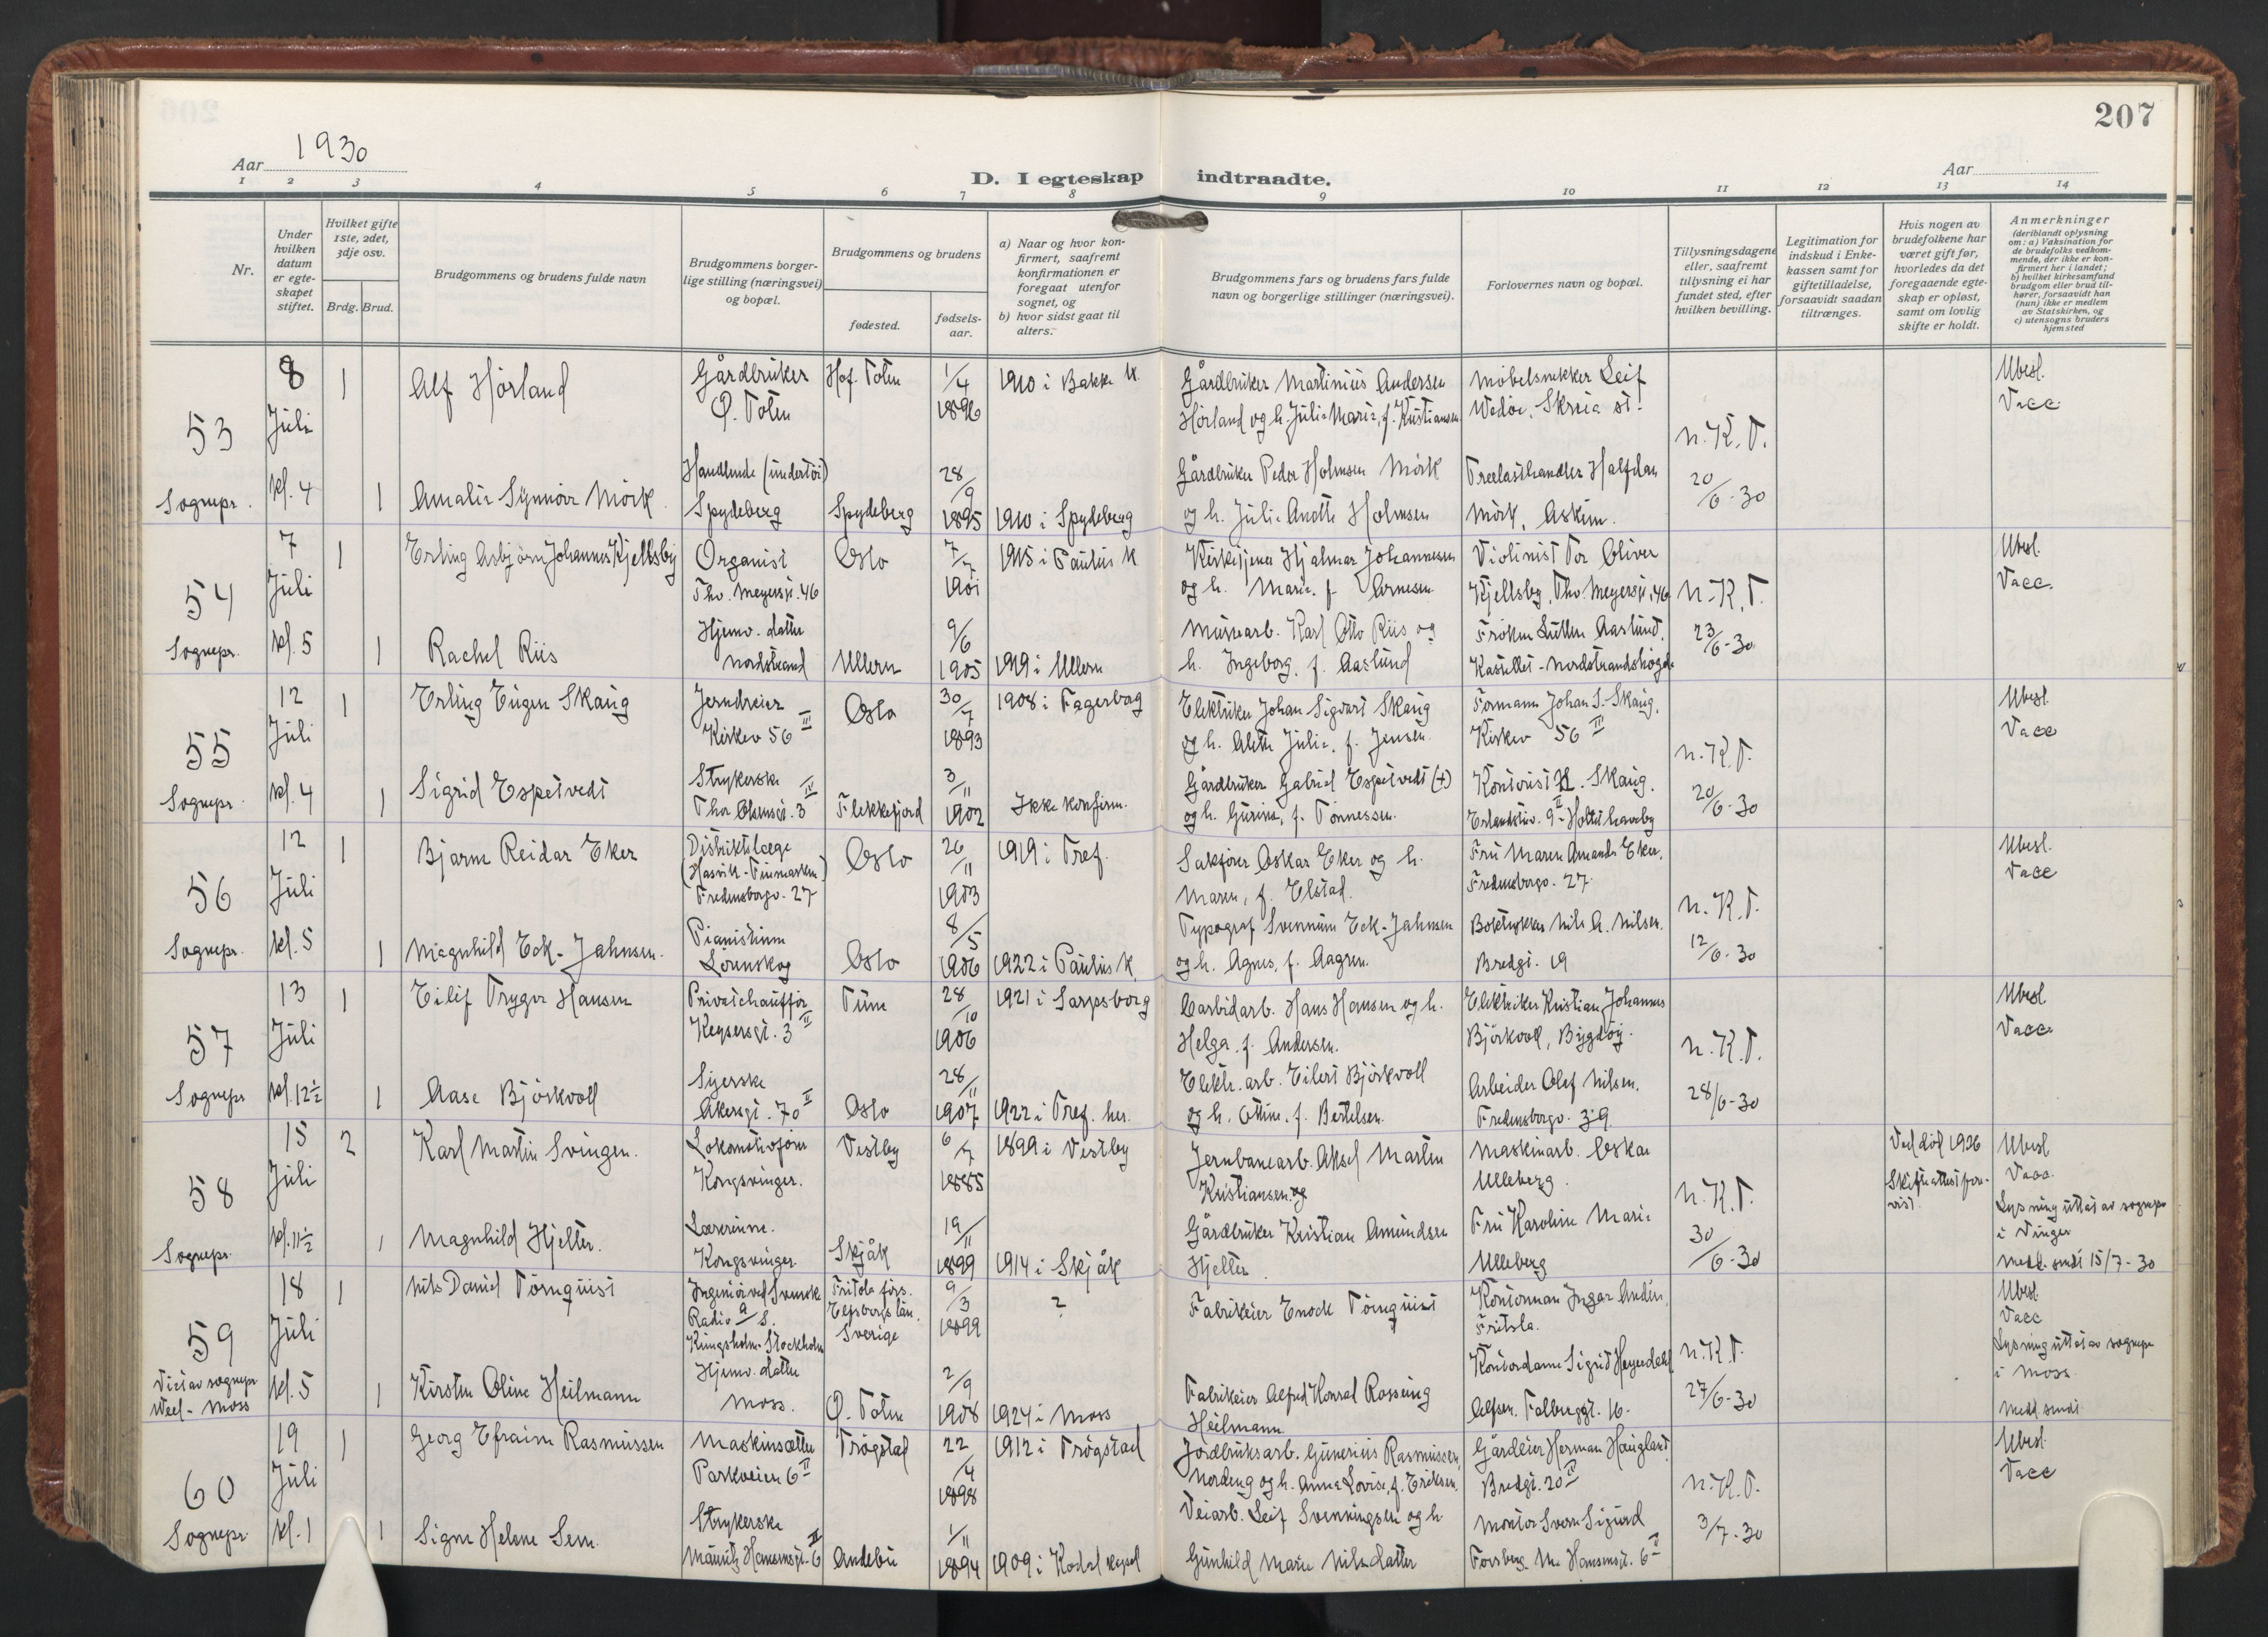 207
Aar 1930
D. I egteskap indtraadte.
Aar
1 2 3 4 5 6 7 8 9 10 11 12 13 14
Nr.
Under hvilken datum er egteskapet stiftet.
Hvilket gifte 1ste, 2det, 3dje osv.
Brdg. Brud.
Brudgommens og brudens fulde navn
Brudgommens borgerlige stilling (næringsvei) og bopæl.
Brudgommens og brudens
fødested.
fødselsaar.
a) Naar og hvor konfirmert, saafremt konfirmationen er foregaat utenfor sognet, og
b) hvor sidst gaat til alters.
Brudgommens fars og brudens fars fulde navn og borgerlige stillinger (næringsvei).
Forlovernes navn og bopæl.
Tillysningsdagene eller, saafremt tillysning ei har fundet sted, efter hvilken bevilling.
Legitimation for indskud i Enkekassen samt for giftetilladelse, forsaavidt saadan tiltrænges.
Hvis nogen av brudefolkene har været gift før, hvorledes da det foregaaende egteskap er opløst, samt om lovlig skifte er holdt.
Anmerkninger
(deriblandt oplysning om: a) Vaksination for de brudefolks vedkommende, der ikke er konfirmert her i landet;
b) hvilket kirkesamfund brudgom eller brud tilhører, forsaavidt han (hun) ikke er medlem av Statskirken, og
c) utensogns bruders hjemsted
53 Sognepr.
8 Juli kl. 4
1 Alf Hörland
Gårdbruker Ö. Toten
Hof. Toten
1/4 1896
1910 i Bakke K.
Gårdbruker Martinius Andersen
Hörland og h. Julie Marie, f. Kristiansen
Möbelsnekker Leif
Wedöe, Skreia st.
n. K. T.
20/6-30
Ubesl.
Vacc.
1 Amalie Synnöve Mörk
Handlende (undertöi)
Spydeberg
Spydeberg
28/9 1895
1910 i Spydeberg
Gårdbruker Peder Holmsen Mörk
og h. Julie Anette Holmsen
Trælasthandler Halfdan
Mörk, Askim.
54 Sognepr.
7 Juli kl. 5
1 Erling Asbjörn Johannes Kjellsby
Organist
Thv. Meyersgt. 46
Oslo
7/7 1901
1915 i Paulus K
Kirketjener Hjalmar Johannesen
og h. Marie f. Arnesen
Violinist Tor Oliver
Kjellsby, Thv. Meyersgt. 46
n. K. T.
23/6-30
Ubesl.
Vacc.
1 Rachel Riis
Hjemv. datter
Nordstrand
Ullern
9/6 1905
1919 i Ullern
Murerarb. Karl Otto Riis og
h. Ingeborg, f. Aaslund
Fröken Lutten Aaslund,
Kastellet - Nordstrandshögda
55 Sognepr.
12 Juli kl. 4
1 Erling Eugen Skaug
Jerndreier
Kirkev 56 III
Oslo
30/7 1893
1908 i Fagerborg
Elektriker Johan Sigvart Skaug
og h. Alette Julie, f. Jensen.
Formann Johan S. Skaug,
Kirkev 56 III
n. K. T.
20/6-30
Ubesl.
Vacc
1 Sigrid Espetvedt
Strykerske
Thv. Olsensgt. 3 IV
Flekkefjord
3/11 1902
Ikke konfirm.
Gårdbruker Gabriel Espetvedt (+)
og h. Gurine, f. Tönnessen.
Kontorist K. Skaug.
56 Sognepr.
12 Juli kl. 5
1 Bjarne Reidar Eker
Distriktslæge
(Hasvik - Finmarken)
Fredensborgv. 27
Oslo
26/11 1903
1919 i Tref.
Sakförer Oskar Eker og h.
Maren, f. Elstad.
Fru Maren Amanda Eker,
Fredensborgv. 27.
n. K. T.
12/6-30
Ubesl.
Vacc
1 Magnhild Eck-Jahnsen.
Pianistinne
Lörenskog
Oslo
8/5 1906
1922 i Paulus K.
Typograf Svennum Eck-Jahnsen
og h. Agnes, f. Aagren.
Boktrykker Nils A. Nilsen.
Bredgt. 19
57 Sognepr
13 Juli kl. 12½
1 Eilif Trygve Hansen
Privatchaufför
Keysersgt. 3 II
Tune
28/10 1906
1921 i Sarpsborg
Carbidarb. Hans Hansen og h.
Helga, f. Andersen.
Elektriker Kristian Johannes
Björkvoll, Bygdöy.
n. K. T.
28/6-30
Ubesl
Vacc.
1 Aase Björkvoll
Syerske
Akersgt. 70 II
Oslo
28/11 1907
1922 i Tref. her.
Elektr. arb. Eilert Björkvoll
og h. Ottine, f. Bertelsen.
Arbeider Olaf Nilsen.
Fredensborgv. 39.
58 Sognepr.
15 Juli kl. 11½
2 Karl Martin Svingen.
Lokomotivförer
Kongsvinger.
Vestby
6/7 1885
1899 i Vestby
Jernbanearb. Aksel Marten
Kristiansen og
Maskinarb. Oskar
Ulleberg.
n. K. T.
30/6-30
Ved död 1926
Skifteattest forevist.
Ubesl
Vacc.
Lysning uttat av sognepr
i Vinger
Medd. sendt 15/7-30
1 Magnhild Hjelter.
Lærerinne.
Kongsvinger.
Skjåk
19/11 1899
1914 i Skjåk
Gårdbruker Kristian Amundsen
Hjelter.
Fru Karoline Marie
Ulleberg
59 Viet av sognepr
Weel - Moss
18 Juli kl. 5
1 Nils Daniel Törnquist
Ingeniör ved Svensk
Radio A/S.
Kungsholm Stockholm
Fritsla förs.
Elfsborgs län.
Sverige
9/3 1899
?
Fabrikeier Enock Törnquist
Kontorman Ingar Andin,
Fritsla.
n. K. T.
27/6-30
Ubesl
Vacc
Lysning uttat av sognepr
i Moss.
Medd sendt
1 Kirsten Oline Heilmann
Hjemv. datter
Moss.
Ö. Toten
2/9 1908
1924 i Moss
Fabrikeier Alfred Konrad Rossing
Heilmann
Kontordame Sigrid Heyerdahl
Alfsen. Falbyggt. 16.
60 Sognepr
19 Juli kl. 1
1 Georg Efraim Rasmussen
Maskinsætter
Parkveien 6 II
Trögstad
22/4 1898
1912 i Trögstad
Jordbruksarb. Gunerius Rasmussen,
Nordeng og h. Anna Lovise, f. Eriksen.
Gårdeier Herman Haugland
Bredgt. 20 II
n. K. T.
3/7-30
Ubesl.
Vacc
1 Signe Helene Sem.
Strykerske
Mauritz Hansensgt. 6 II
Andebu
1/11 1894
1909 i Kodal kapel
Veiarb. Leif Svenningsen og h
Gunhild Marie Nilsdatter
Montör Svern Sigurd
Forsberg M. Hansensgt. 6 II